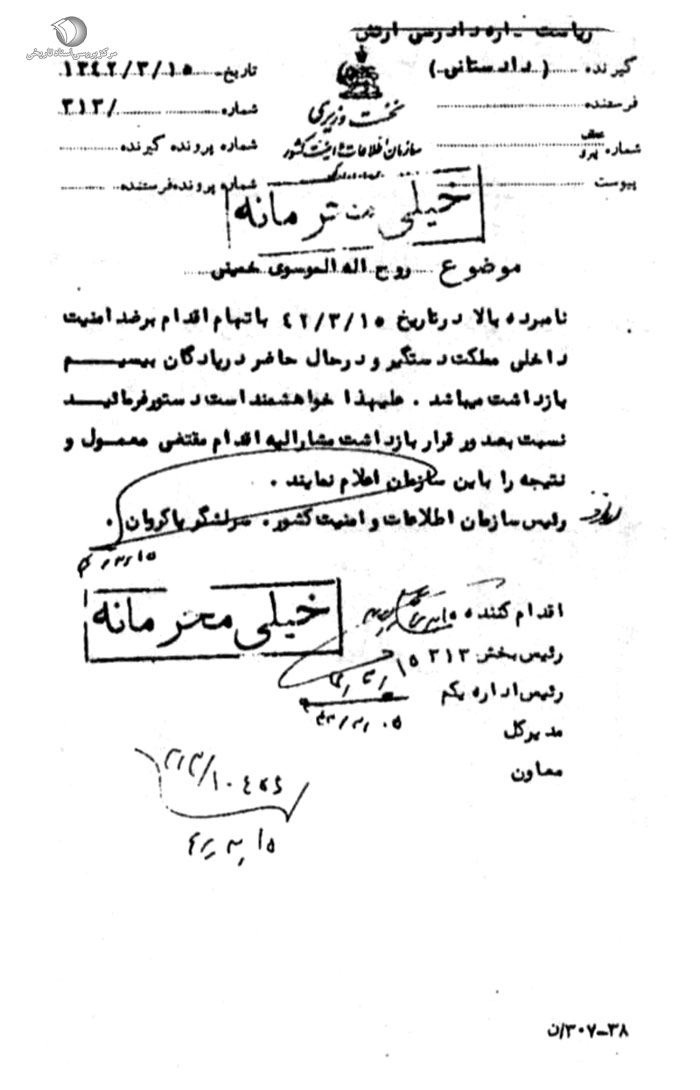 مرکز بررسی اسناد تاریخی
ریاست اداره دادرسی ارتش
گیرنده (دادستانی)
تاریخ ۱۳۴۲/۳/۱۵
فرستنده
نخست وزیری
شماره /۳۱۲
سازمان اطلاعات و امنیت کشور
شماره پرونده گیرنده
شماره
پیوست
شماره پرونده فرستنده
خیلی محرمانه
موضوع روح اله الموسوی خمینی
نامبرده بالا در تاریخ ۴۲/۳/۱۵ باتهام اقدام برضد امنیت
داخلی مملکت دستگیر و در حال حاضر در پادگان بیسیم
بازداشت میباشد . علیهذا خواهشمند است دستور فرمائید
نسبت بصدور قرار بازداشت مشارالیه اقدام مقتضی معمول و
نتیجه را باین سازمان اعلام نمایند .
رئیس سازمان اطلاعات و امنیت کشور . سرلشگر پاکروان .
خیلی محرمانه
اقدام کننده
رئیس بخش ۳۱۲
رئیس اداره یکم
مدیر کل
معاون
۳۸-۳۰۷/ن